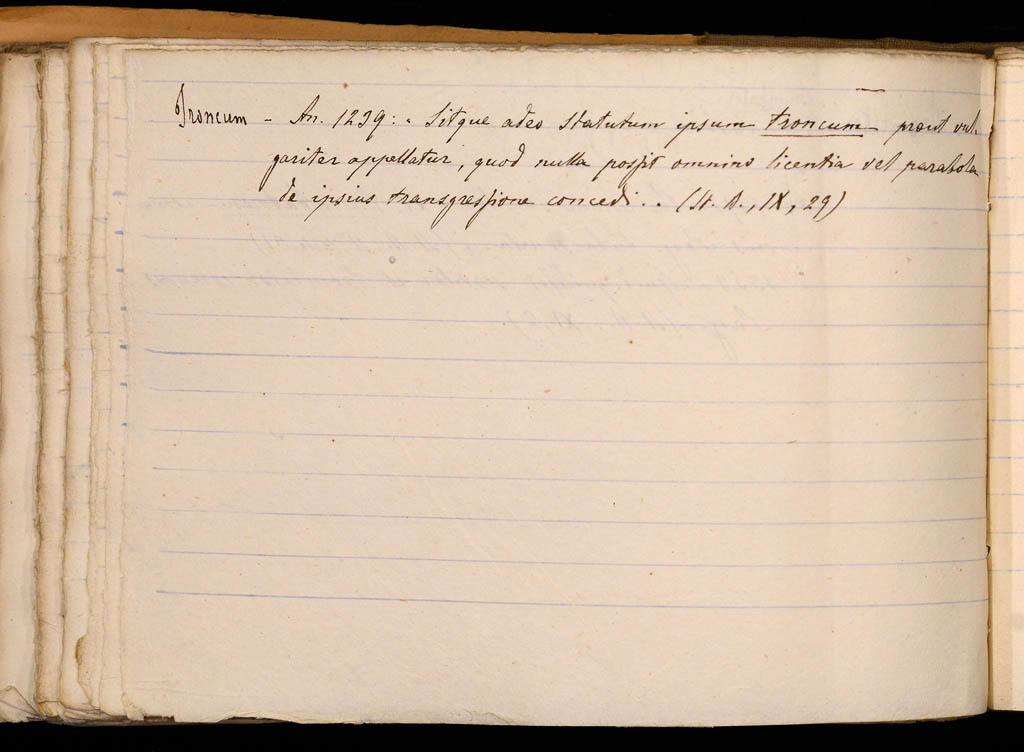 Troncum - An. 1239: " Sitque adeo statutum ipsum troncum prout vul-
gariter appellatur, quod nulla possit omnino licentia vel parabola
de ipsius transgressione concedi. " (St. A., IX, 29)